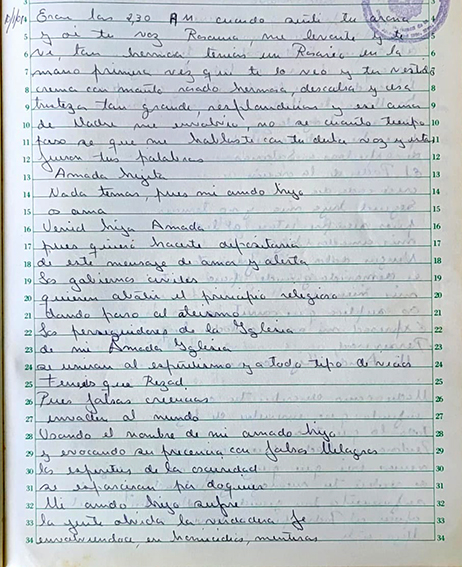 Eran las 2,30 AM cuando sentí tu aroma
y oí tu voz Rosarina, me levante y te
vi, tan hermosa, tenías un Rosario en la
mano primera vez que te lo veo y tu vestido
crema con manto rosado hermosa, descalsa y esa
tristeza tan grande, resplandecias y ese amor
de Madre me envolvia, no se cuanto tiempo
paso se que me hablaste con tu dulce voz y estas
fueron tus palabras
Amada hijita
Nada temas, pues mi amado hijo
os ama
Venid hija Amada
pues quiero hacerte depositaria
de este mensaje de amor y alerta
Los gobiernos civiles
quieren abolir el principio religioso
dando paso al ateismo
Los perseguidores de la Iglesia
de mi Amada Iglesia
se uniran al espiritismo y a todo tipo de vicios
Teneis que Rezad
Pues falsas creencias
invaden al mundo
Usando el nombre de mi amado hijo
y evocando su precencia con falsos Milagros
los espiritus de la oscuridad
se esparciran por doquier
Mi amado hijo sufre
la gente olvida la verdadera fe
envolviendoce, en homicidios, mentiras